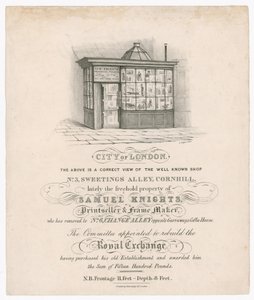 CITY OF LONDON.
THE ABOVE IS A CORRECT VIEW OF THE WELL KNOWN SHOP
No. 3, SWEETINGS ALLEY, CORNHILL,
lately the freehold property of
SAMUEL KNIGHTS,
Printseller & Frame Maker,
who has removed to No. 6, CHANGE ALLEY opposite Garraway's Coffee House.
The Committee appointed to rebuild the
Royal Exchange
having purchased his old Establishment and awarded him
the Sum of Fifteen Hundred Pounds.
N.B. Frontage 11, Feet - Depth 8 Feet.